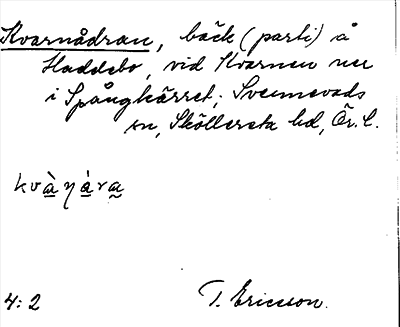 Kvarnådran, bäck (parti) å
Haddebo, vid Kvarnen ner
i Spångkärret; Svennevads
sn, Sköllersta hd, Ör. l.
kvà̱ŋá̱ra̰
4:2 T. Ericsson.